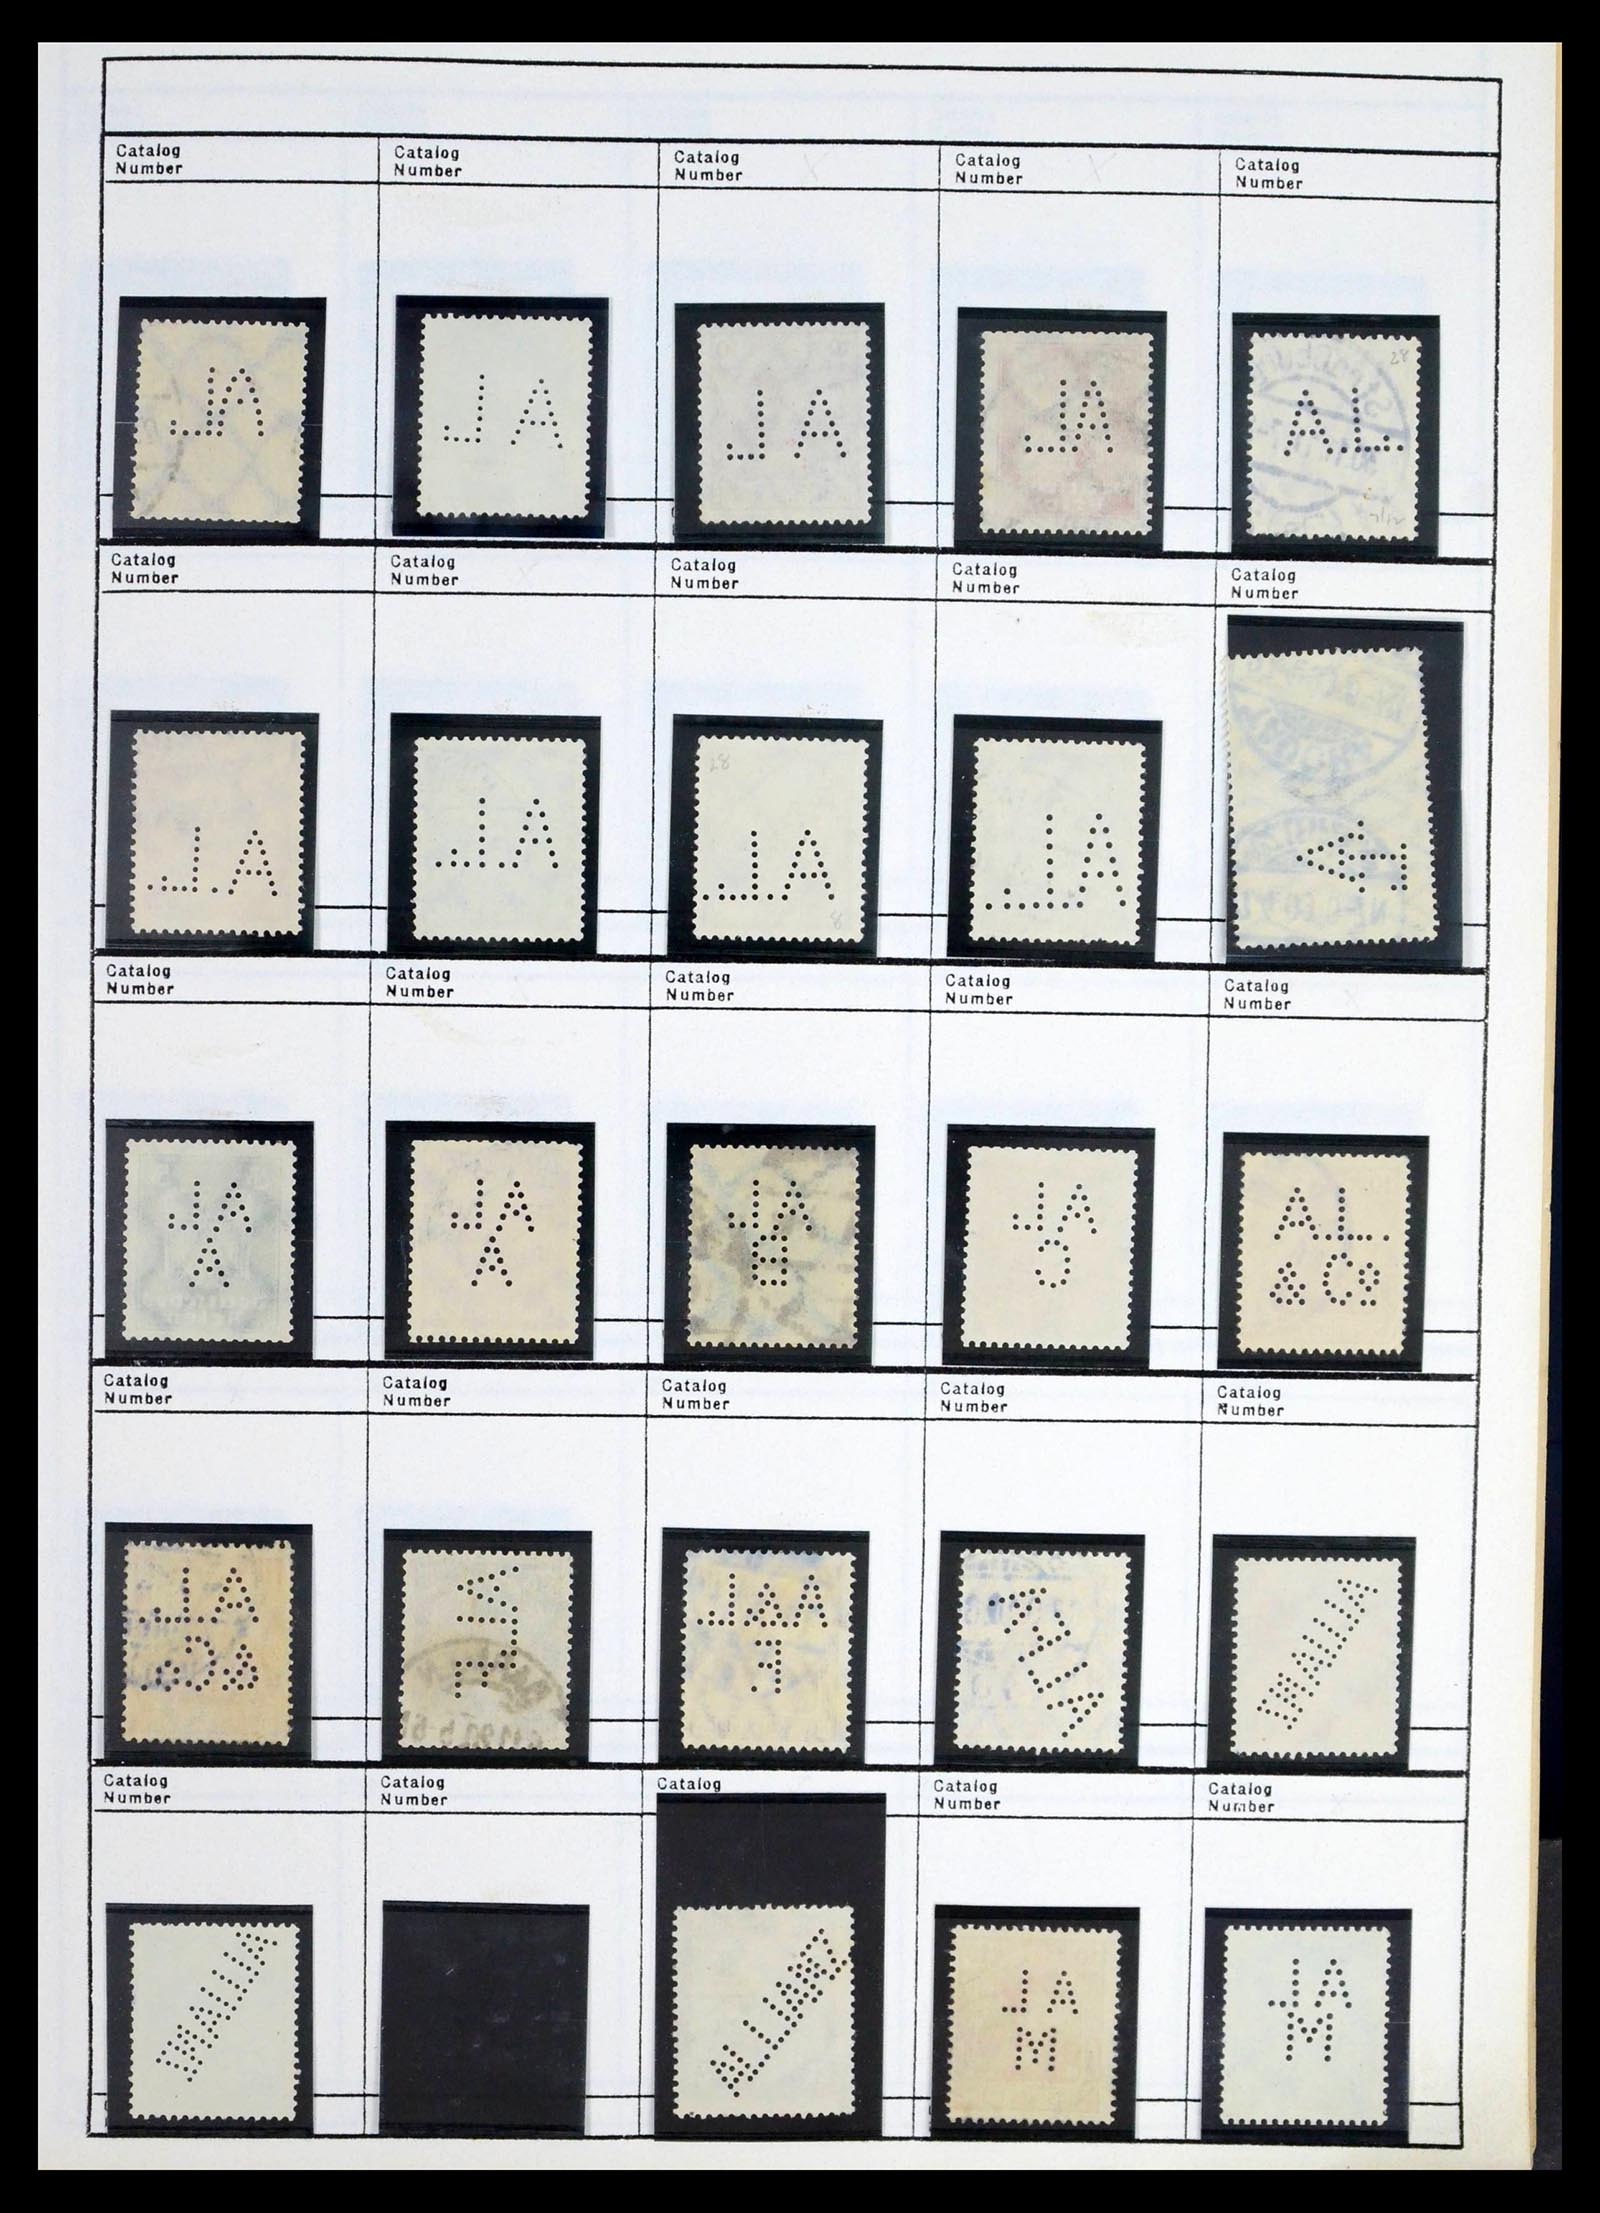 Catalog Number
Catalog Number
Catalog Number
Catalog Number
Catalog Number
AL
AL
AL
AL
AL.
28
Catalog Number
Catalog Number
Catalog Number
Catalog Number
Catalog Number
A.L.
A.L.
A.L.
A.L.
87
8
Catalog Number
Catalog Number
Catalog Number
Catalog Number
Catalog Number
AL
A
AL
A
AL
B
AL
C
A.L.
& Co
Catalog Number
Catalog Number
Catalog Number
Catalog Number
Catalog Number
A.L.
&Co.
A&L
F
Catalog Number
Catalog Number
Catalog
Catalog Number
Catalog Number
AL
M
AL
M